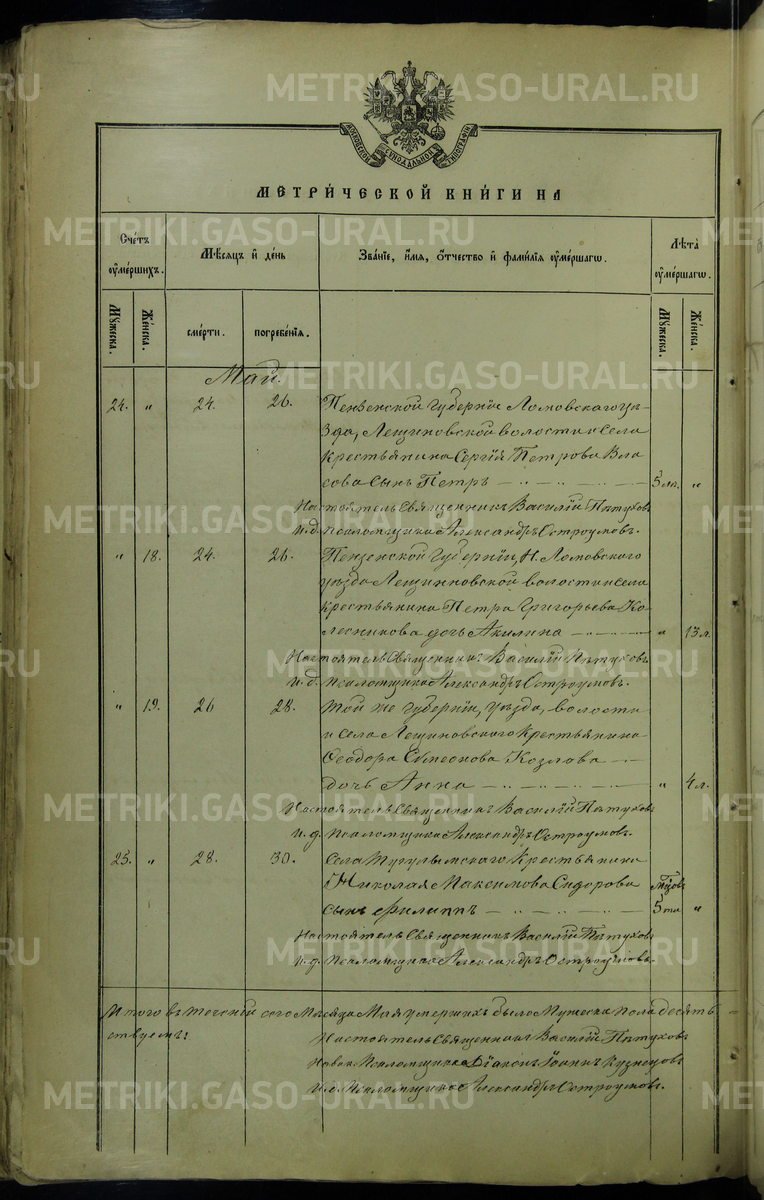 METRIKI.GASO-URAL.RU
МОСКОВСКОЙ СѴНОДАЛЬНОЙ ТИПОГРАФІИ
МЕТРИ́ЧЕСКОЙ КНИ́ГИ НА
Сче́тъ оу҆ме́ршихъ.
Мѣ́сяцъ и҆ де́нь
Зва́нїе, и҆́мя, ѻ҆́тчество и҆ фами́лїя оу҆ме́ршагѡ.
Лѣ́та оу҆ме́ршагѡ.
Мꙋ́жеска.
Же́нска.
сме́рти.
погребе́нїя.
Мꙋ́жеска.
Же́нска.
Май.
24. " 24. 26. Пензенской губерніи Ломовскаго уѣ-
зда, Лещиновской волости и села
крестьянина Сергія Петрова Вла
сова сынъ Петръ 5 "
Настоятель Священникъ Василій Пѣтухов
и. д. псаломщика Александръ Остроумовъ.
" 18. 24. 26. Пензенской губерніи, Н. Ломовскаго
уѣзда Лещиновской волости и села
крестьянина Петра Григорьева Ко-
лесникова дочь Акилина " 13 л.
Настоятель Священникъ Василій Пѣтуховъ
и. д. псаломщика Александръ Остроумовъ.
" 19. 26 28. Той же губерніи, уѣзда, волости
и села Лещиновскаго крестьянина
Ѳеодора Симеонова Козлова
дочь Анна " 4 л.
Настоятель Священникъ Василій Пѣтухов
и. д. псаломщика Александръ Остроумовъ.
25. " 28. 30. Села Тугулымскаго крестьянина
Николая Максимова Сидорова
сынъ Филиппъ 5 "
Настоятель Священникъ Василій Пѣтухов
и. д. псаломщика Александръ Остроумовъ.
Итого въ теченіи сего мѣсяца Мая умершихъ было мужеска пола десять
ствуемъ:
Настоятель Священникъ Василій Пѣтухов
Псаломщика Діаконъ Іоаннъ Кузнецовъ
И. д. псаломщика Александръ Остроумовъ.